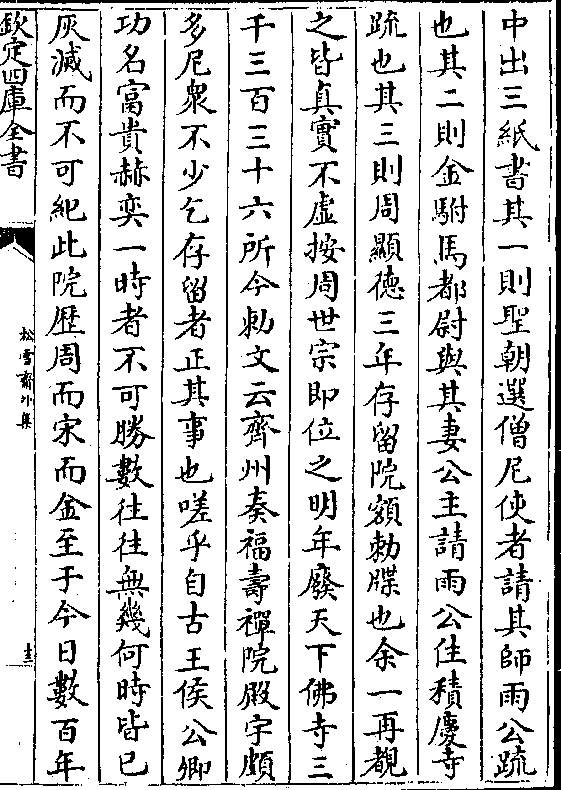 中出三紙書其一則聖朝選僧尼使者請其師雨公疏
也其二則金駙馬都尉與其妻公主請雨公住積慶寺
疏也其三則周顯德三年存留院額勅牒也余一再覩
之皆真實不虛按周世宗即位之明年廢天下佛寺三
千三百三十六所今勅文云齊州奏福壽禪院殿宇頗
多尼衆不少乞存留者正其事也嗟乎自古王侯公卿
功名富貴赫奕一時者不可勝數往往無幾何時皆已
灰滅而不可紀此院歴周而宋而金至于今日數百年
欽定四庫全書
松雪齋外集